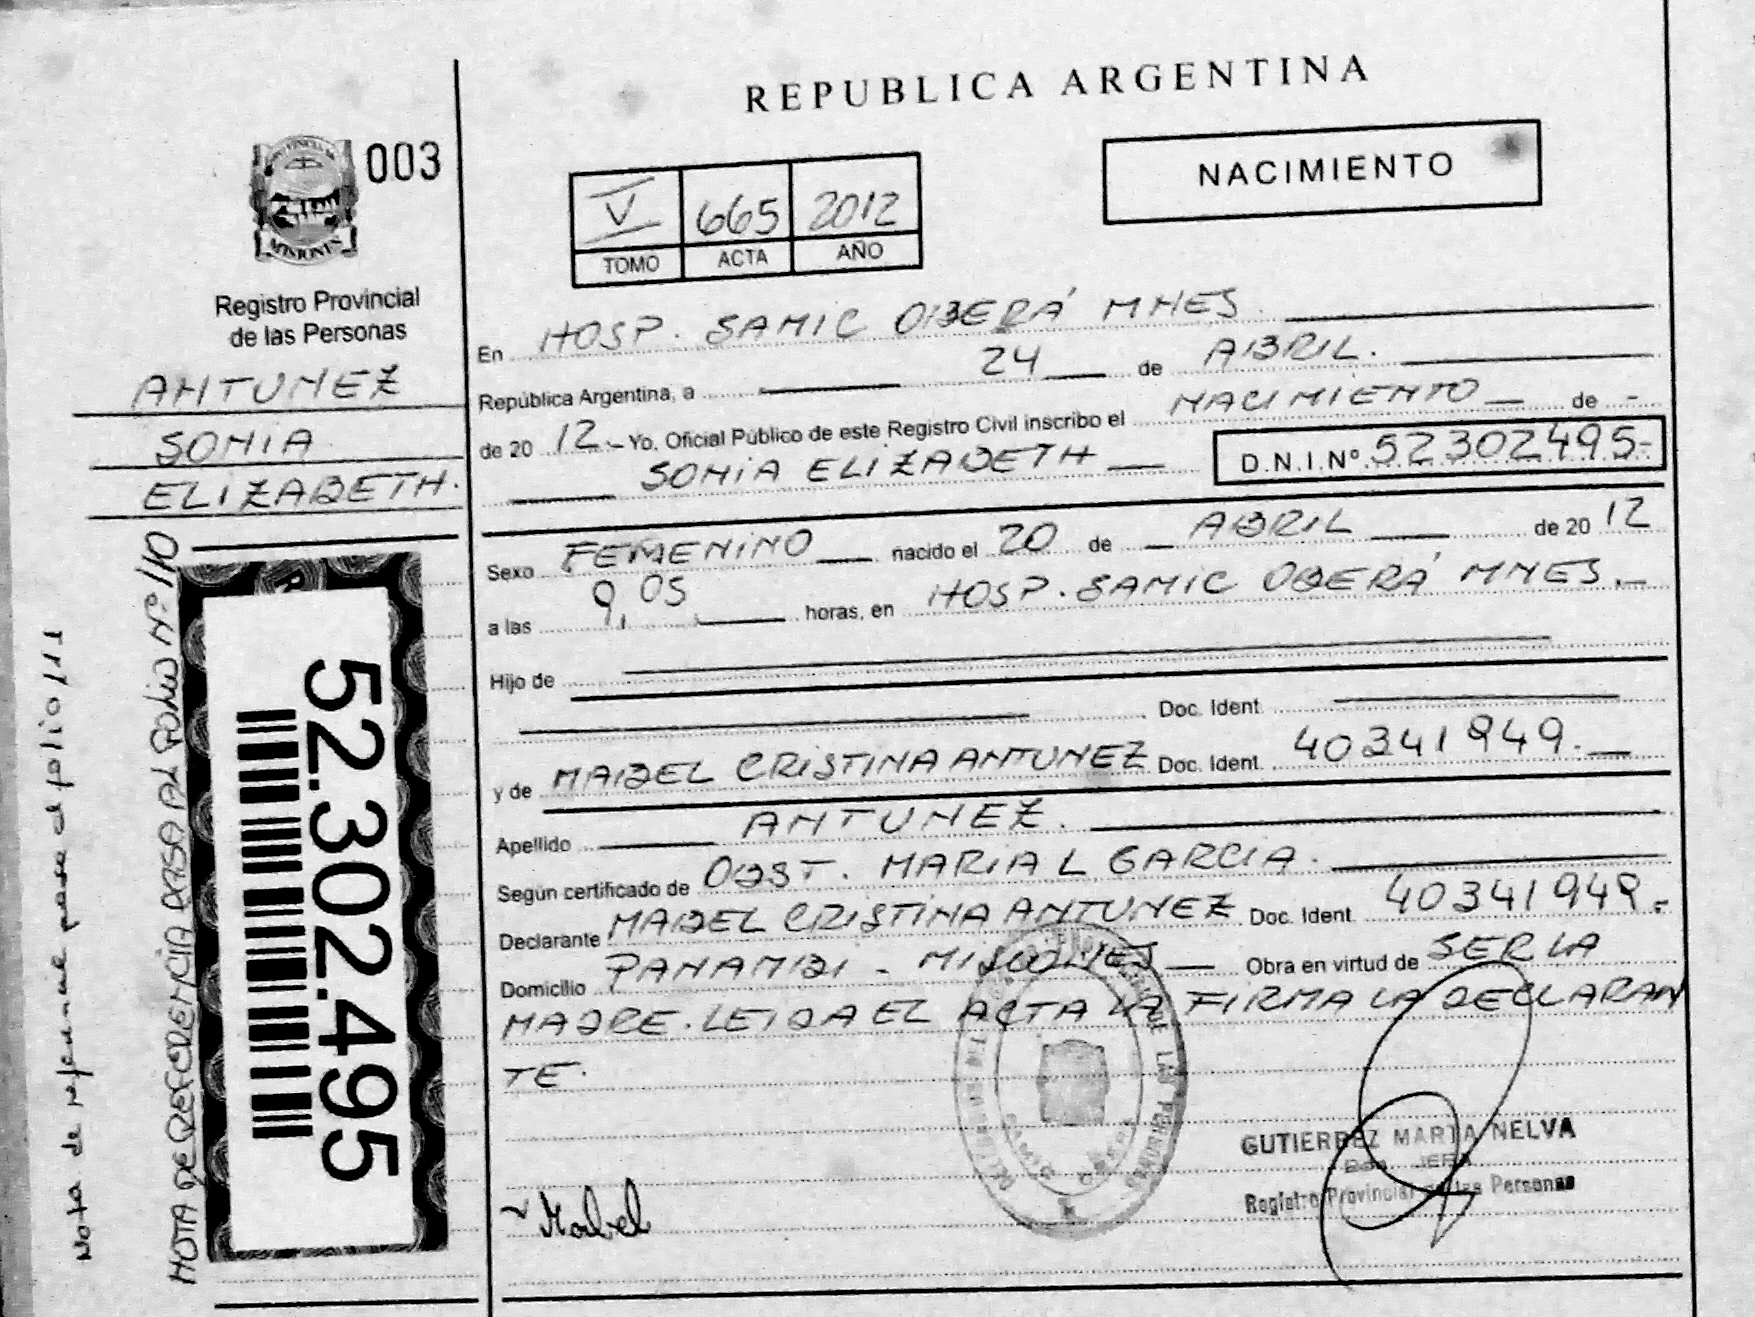 REPUBLICA ARGENTINA
003
MISIONES
Registro Provincial
de las Personas
ANTUNEZ
SONIA
ELIZABETH.
NACIMIENTO
V 665 2012
TOMO ACTA AÑO
En HOSP. SAMIC OBERÁ MNES.
República Argentina, a 24 de ABRIL.
de 20 12.- Yo, Oficial Público de este Registro Civil inscribo el NACIMIENTO de -
SONIA ELIZABETH D.N.I.Nº 52302495-
Sexo FEMENINO nacido el 20 de ABRIL de 20 12
a las 9,05 horas, en HOSP. SAMIC OBERÁ MNES.-
Hijo de
Doc. Ident.
y de MABEL CRISTINA ANTUNEZ Doc. Ident. 40341949.-
Apellido ANTUNEZ.
Según certificado de OBST. MARIA L GARCIA.
Declarante MABEL CRISTINA ANTUNEZ Doc. Ident. 40341949.-
Domicilio PANAMBI - MISIONES Obra en virtud de SER LA
MADRE. LEIDA EL ACTA LA FIRMA LA DECLARAN
TE.
Mabel
GUTIERREZ MARTA NELVA
Registro Provincial de las Personas
52.302.495
NOTA DE REFERENCIA PASA AL FOLIO Nº 110
Nota de referencia pasa al folio 111